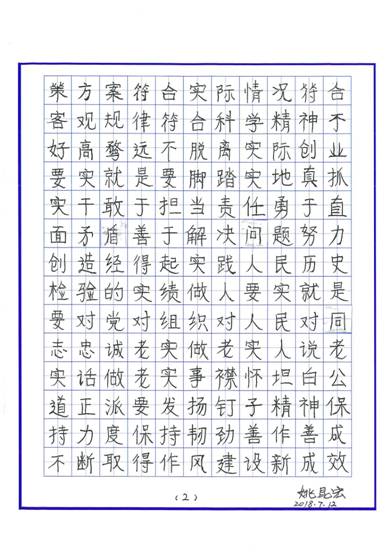 策方案符合实际情况符合
客观规律符合科学精神不
好高骛远不脱离实际创业
要实就是要脚踏实地真抓
实干敢于担当责任勇于直
面矛盾善于解决问题努力
创造经得起实践人民历史
检验的实绩做人要实就是
要对党对组织对人民对同
志忠诚老实做老实人说老
实话做老实事襟怀坦白公
道正派要发扬钉子精神保
持力度保持韧劲善作善成
不断取得作风建设新成效
(2)
姚昆宏
2018.7.12